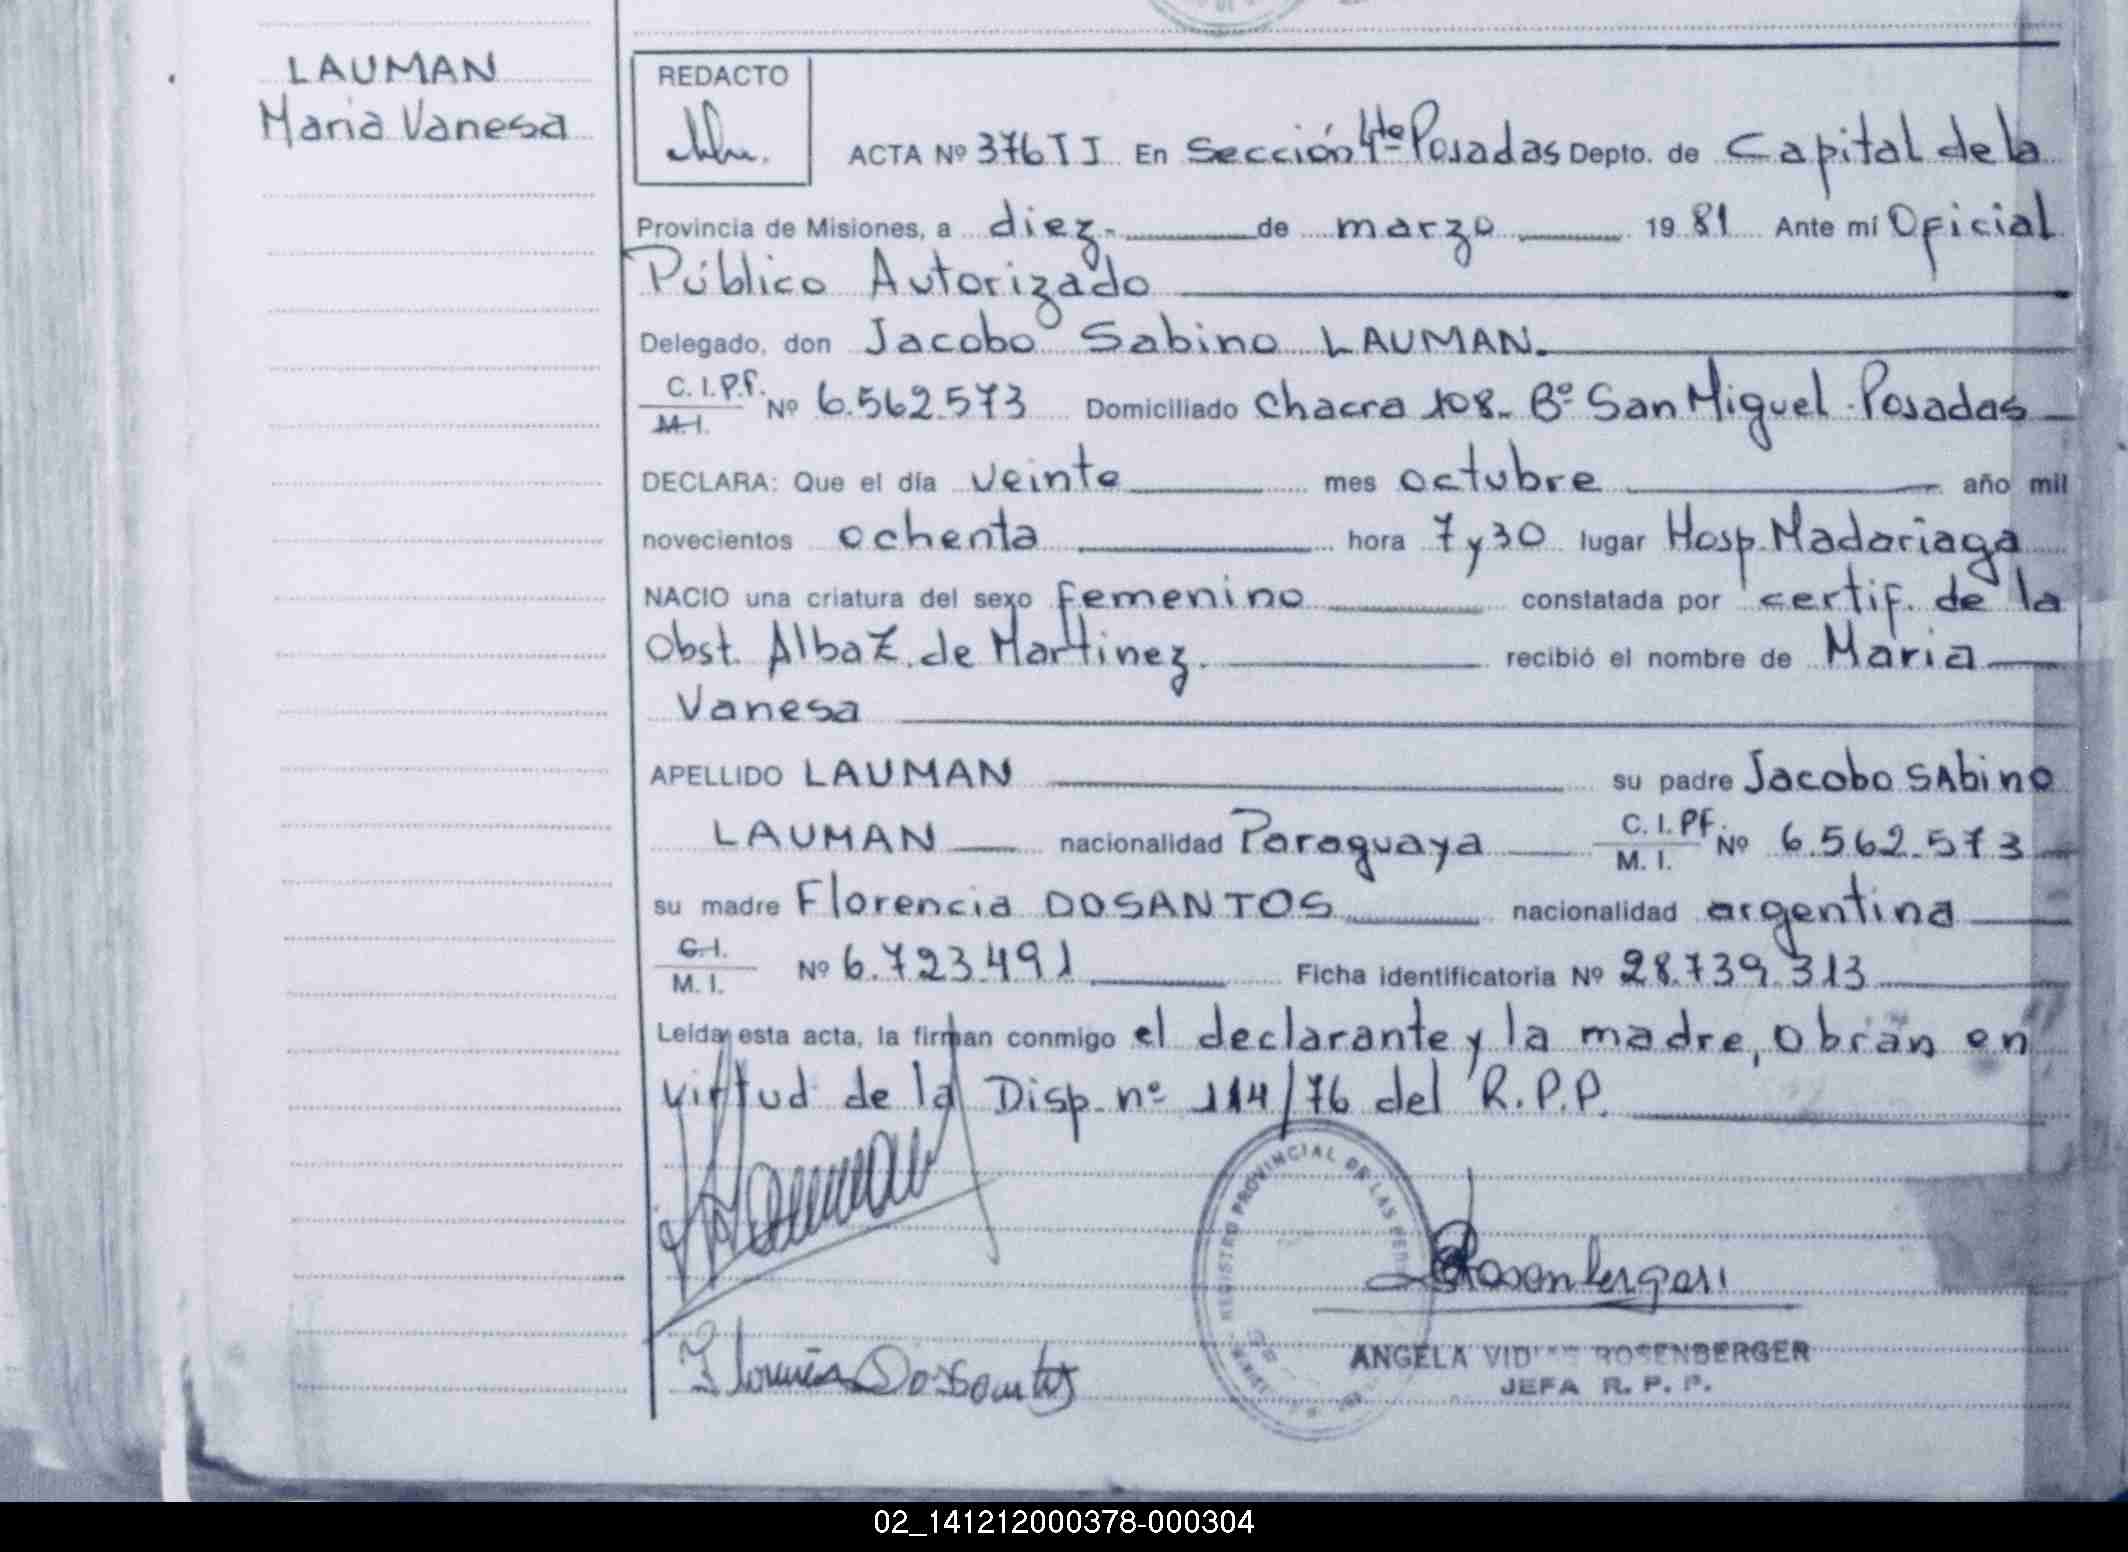 LAUMAN
Maria Vanesa
REDACTO
ACTA Nº 376 TI En Sección 4ta Posadas Depto. de Capital de la
Provincia de Misiones, a diez de marzo 1981 Ante mí Oficial
Público Autorizado
Delegado, don Jacobo Sabino LAUMAN.
C. I. P.f. Nº 6.562.573 Domiciliado Chacra 108. Bº San Miguel - Posadas
M. I.
DECLARA: Que el día veinte mes octubre año mil
novecientos ochenta hora 7 y 30 lugar Hosp. Madariaga
NACIO una criatura del sexo femenino constatada por certif. de la
Obst. Alba Z. de Martinez. recibió el nombre de Maria
Vanesa
APELLIDO LAUMAN su padre Jacobo SAbino
LAUMAN nacionalidad Paraguaya C. I. PF. Nº 6.562.573
M. I.
su madre Florencia DOSANTOS nacionalidad argentina
C. I.
M. I. Nº 6.723.491 Ficha identificatoria Nº 28.739.313
Leída esta acta, la firman conmigo el declarante y la madre, obran en
virtud de la Disp. nº 114/76 del R.P.P.
REGISTRO PROVINCIAL DE LAS
Rosenberger
Florencia Dossantos
ANGELA ROSENBERGER
JEFA R. P. P.
02_141212000378-000304